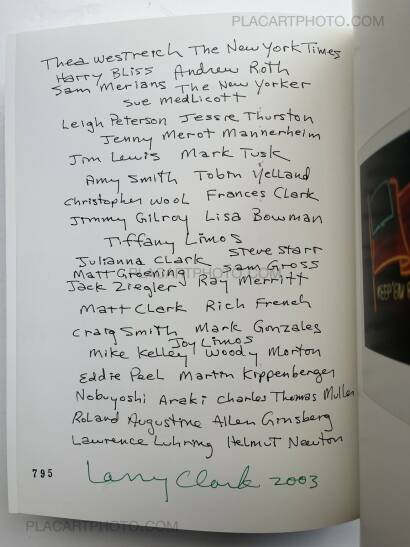 PLACARTPHOTO.COM
Thea Westreich The New York Times
Harry Bliss Andrew Roth
Sam Merians The New Yorker
Sue Medlicott
Leigh Peterson Jessie Thurston
Jenny Merot Mannerheim
Jim Lewis Mark Tusk
Amy Smith Tobin Yelland
Christopher Wool Frances Clark
Jimmy Gilroy Lisa Bowman
Tiffany Limos
Julianna Clark Steve Starr
Matt Groening Sam Gross
PLACARTPHOTO.COM
Jack Ziegler Ray Merritt
Matt Clark Rich French
Craig Smith Mark Gonzales
Joy Limos
Mike Kelley Woody Morton
Eddie Peel Martin Kippenberger
Nobuyoshi Araki Charles Thomas Mullen
Roland Augustine Allen Ginsberg
Lawrence Luhring Helmut Newton
795
Larry Clark 2003
PLACARTPHOTO.COM
KEEP 'EM